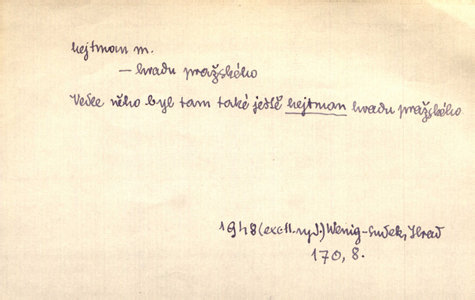 hejtman m.
— hradu pražského
Vedle něho byl tam také ještě hejtman hradu pražského
1948 Wenig-Sudek, Hrad
170, 8.